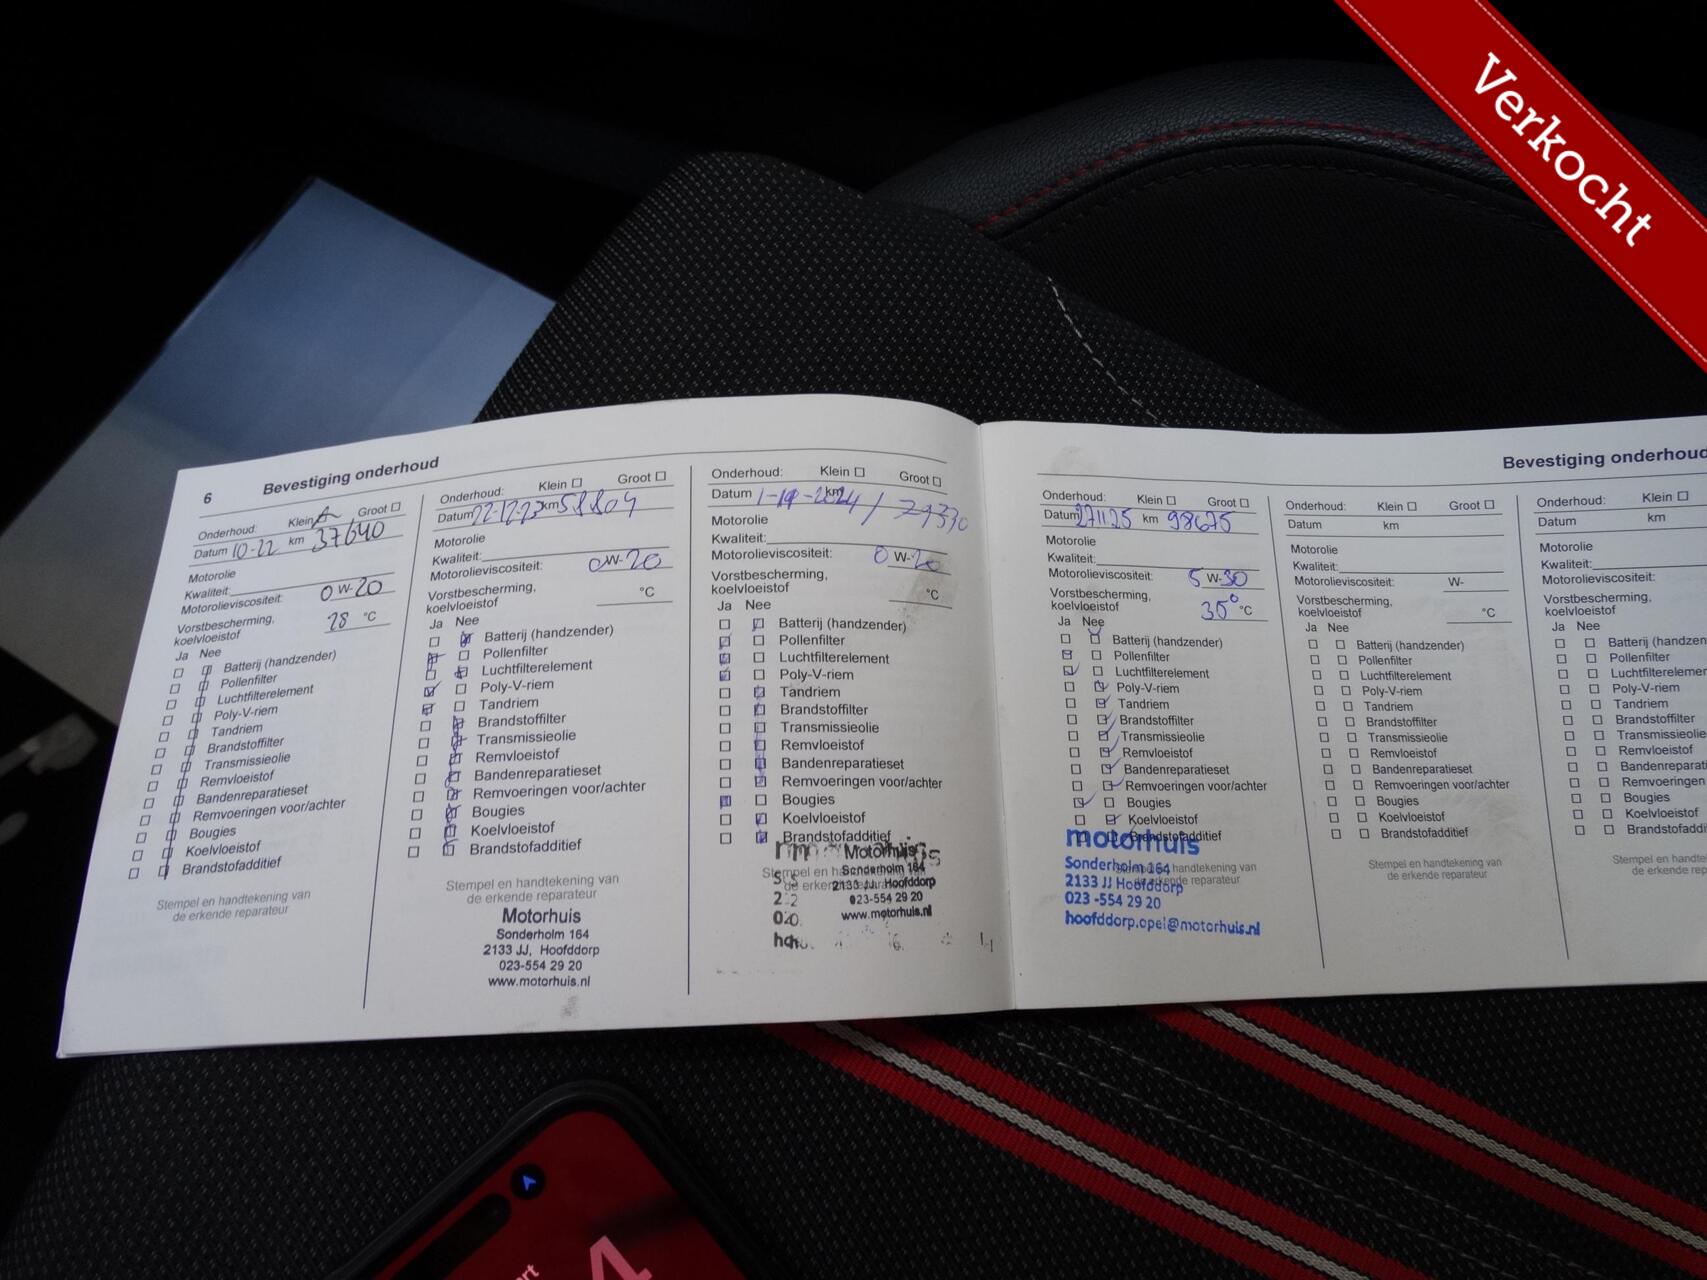 Verkocht
6 Bevestiging onderhoud
Onderhoud: Klein Groot
Datum 10-22 km 37640
Motorolie
Kwaliteit:
Motorolieviscositeit: 0 W-20
Vorstbescherming,
koelvloeistof 28 °C
Ja Nee
Batterij (handzender)
Pollenfilter
Luchtfilterelement
Poly-V-riem
Tandriem
Brandstoffilter
Transmissieolie
Remvloeistof
Bandenreparatieset
Remvoeringen voor/achter
Bougies
Koelvloeistof
Brandstofadditief
Stempel en handtekening van
de erkende reparateur
Onderhoud: Klein Groot
Datum 22-12-23 km 58804
Motorolie
Kwaliteit:
Motorolieviscositeit: 0 W-20
Vorstbescherming,
koelvloeistof °C
Ja Nee
Batterij (handzender)
Pollenfilter
Luchtfilterelement
Poly-V-riem
Tandriem
Brandstoffilter
Transmissieolie
Remvloeistof
Bandenreparatieset
Remvoeringen voor/achter
Bougies
Koelvloeistof
Brandstofadditief
Stempel en handtekening van
de erkende reparateur
Motorhuis
Sonderholm 164
2133 JJ, Hoofddorp
023-554 29 20
www.motorhuis.nl
Onderhoud: Klein Groot
Datum km
Motorolie
Kwaliteit:
Motorolieviscositeit: 0 W-20
Vorstbescherming,
koelvloeistof °C
Ja Nee
Batterij (handzender)
Pollenfilter
Luchtfilterelement
Poly-V-riem
Tandriem
Brandstoffilter
Transmissieolie
Remvloeistof
Bandenreparatieset
Remvoeringen voor/achter
Bougies
Koelvloeistof
Brandstofadditief
Motorhuis
Sonderholm 164
2133 JJ, Hoofddorp
023-554 29 20
www.motorhuis.nl
Bevestiging onderhoud
Onderhoud: Klein Groot
Datum 271125 km 98675
Motorolie
Kwaliteit:
Motorolieviscositeit: 5 W-30
Vorstbescherming,
koelvloeistof 35° °C
Ja Nee
Batterij (handzender)
Pollenfilter
Luchtfilterelement
Poly-V-riem
Tandriem
Brandstoffilter
Transmissieolie
Remvloeistof
Bandenreparatieset
Remvoeringen voor/achter
Bougies
Koelvloeistof
Brandstofadditief
motorhuis
Sonderholm 164
2133 JJ Hoofddorp
023 -554 29 20
hoofddorp.opel@motorhuis.nl
Onderhoud: Klein Groot
Datum km
Motorolie
Kwaliteit:
Motorolieviscositeit: W-
Vorstbescherming,
koelvloeistof °C
Ja Nee
Batterij (handzender)
Pollenfilter
Luchtfilterelement
Poly-V-riem
Tandriem
Brandstoffilter
Transmissieolie
Remvloeistof
Bandenreparatieset
Remvoeringen voor/achter
Bougies
Koelvloeistof
Brandstofadditief
Stempel en handtekening van
de erkende reparateur
Onderhoud: Klein
Datum km
Motorolie
Kwaliteit:
Motorolieviscositeit:
Vorstbescherming,
koelvloeistof
Ja Nee
Batterij (handzen
Pollenfilter
Luchtfilterelemen
Poly-V-riem
Tandriem
Brandstoffilter
Transmissieolie
Remvloeistof
Bandenreparati
Remvoeringen vo
Bougies
Koelvloeistof
Brandstofadditi
Stempel en hand
de erkende
4